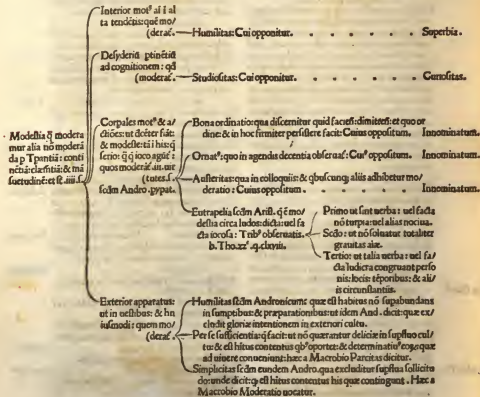 Interior mot⁹ aĩ ĩ al
ta tendẽtis: quẽ mo/
(derat̃.
Humilitas: Cui opponitur. . . . . . Superbia.
Desyderiũ ptinẽtiũ
ad cognitionem: qđ
(moderat̃.
Studiositas: Cui opponitur. . . . . . Curiositas.
Modestia q̃ modera
mur alia nõ modera
da p Tpantiã: conti
nẽtiã: clẽmẽtiã: & mã
suetudinẽ: et sũt .iiii. s.
Corpales mot⁹ & a/
ctiões: ut dẽcter fiãt:
& modeste: tã ĩ his: q̃
serio: q̃ q̃ ioco agũt̃:
quos moderãt̃ .iii. uir
(tutes. s.
scđm Andro. pypat.
Bona ordinatio: qua discernitur quid faciẽđ: dimittẽđ: et quo or
dine: & in hoc firmiter persistere facit: Cui oppositum. Innominatum.
Ornat⁹: quo in agendis decentia obseruat̃: Cui⁹ oppositum. Innominatum.
Austeritas: qua in colloquiis: & qbuscunq; aliis adhibetur mo/
deratio: Cuius oppositum. . . . . Innominatum.
Eutrapelia scđm Arist. q̃ ẽ mo/
destia circa ludos: dicta: uel fa
cta iocosa: Trib⁹ obseruatis.
b. Tho. xx͛. q. clxviii.
Primo ut sint uerba: uel facta
nõ turpia: uel alias nociua.
Scđo: ut nõ soluatur totaliter
grauitas aĩæ.
Tertio: ut talia uerba: uel fa/
cta ludicra congruant perso
nis: locis: tẽporibus: & ali/
is circunstantiis.
Exterior apparatus:
ut in uestibus: & hu
iusmodi: quem mo/
(derat̃.
Humilitas scđm Andronicum: quæ est habitus nõ supabundans
in sumptibus: & præparationibus: ut idem And. dicit: quæ ex/
cludit gloriæ intentionem in exteriori cultu.
Per se sufficientia: q̃ facit: ut nõ quærantur deliciæ in supfluo cul/
tu: & est hitus contentus qb⁹ oportet: & determinatiu⁹ eoȝ: quæ
ad uiuere conueniunt: hæc a Macrobio Parcitas dicitur.
Simplicitas scđm eundem Andro. qua excluditur supflua sollicitu
do: unde dicit: q̃ est hitus contentus his quæ contingunt. Hæc a
Macrobio Moderatio uocatur.